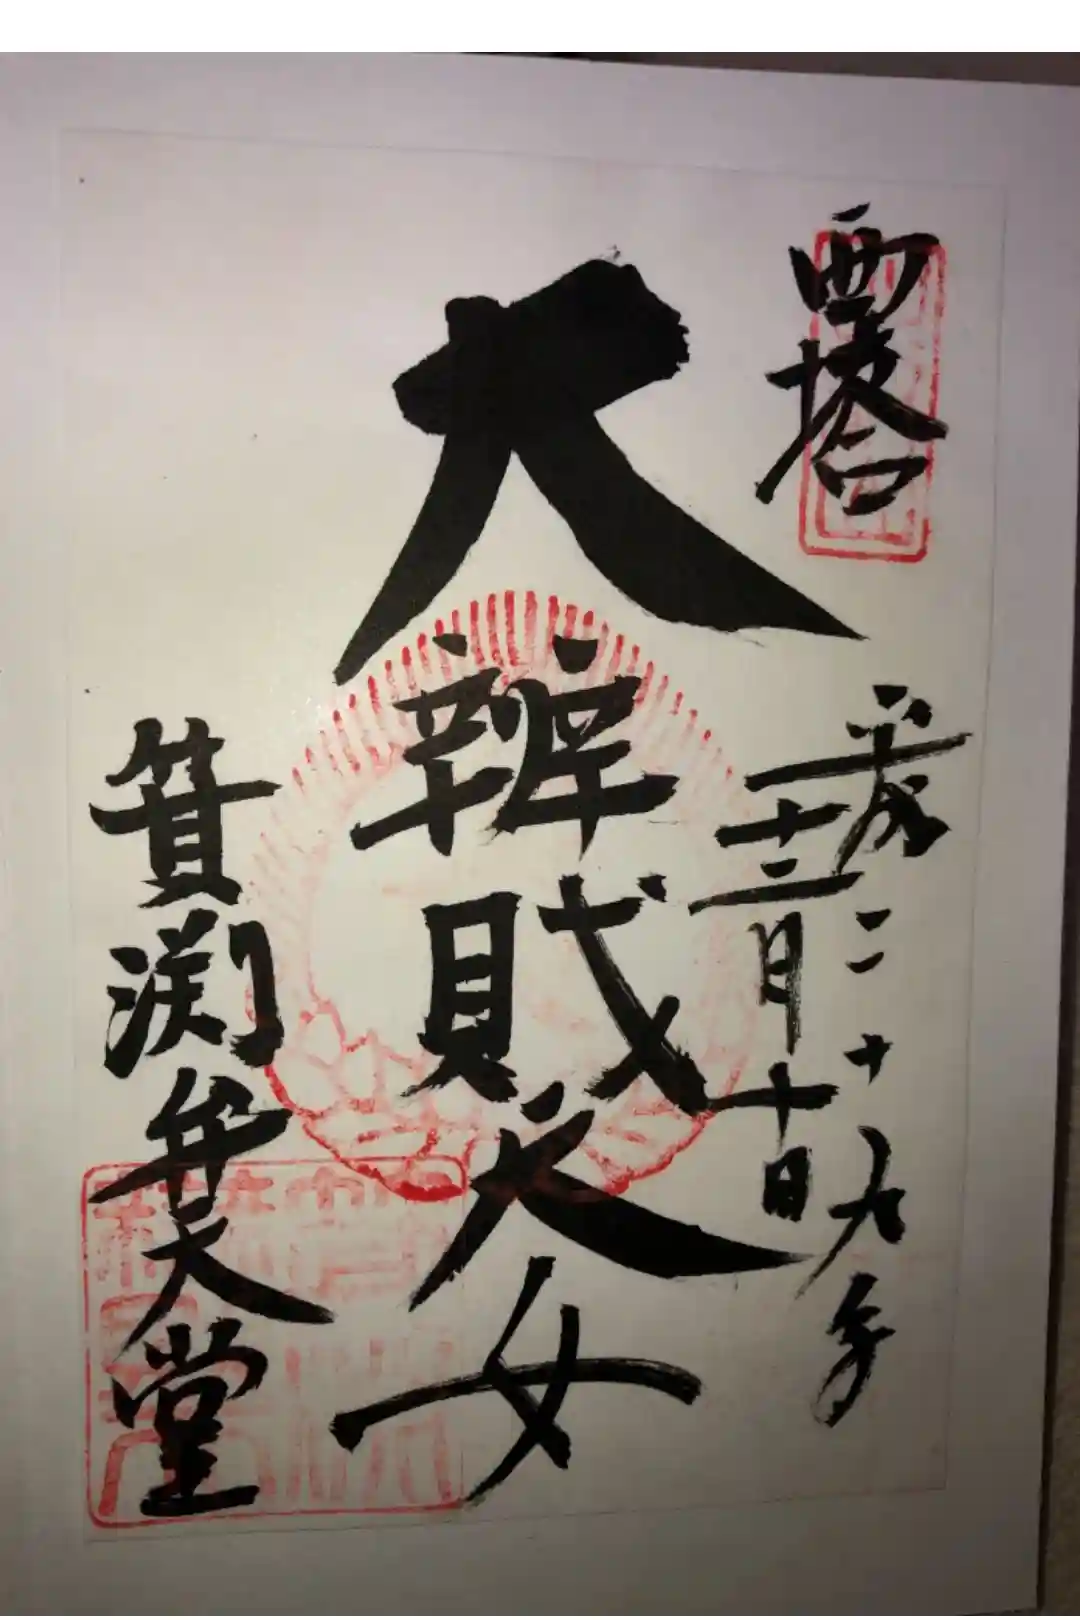 西塔
平成二十九年
十二月十日
大辨財天女
箕淵弁天堂